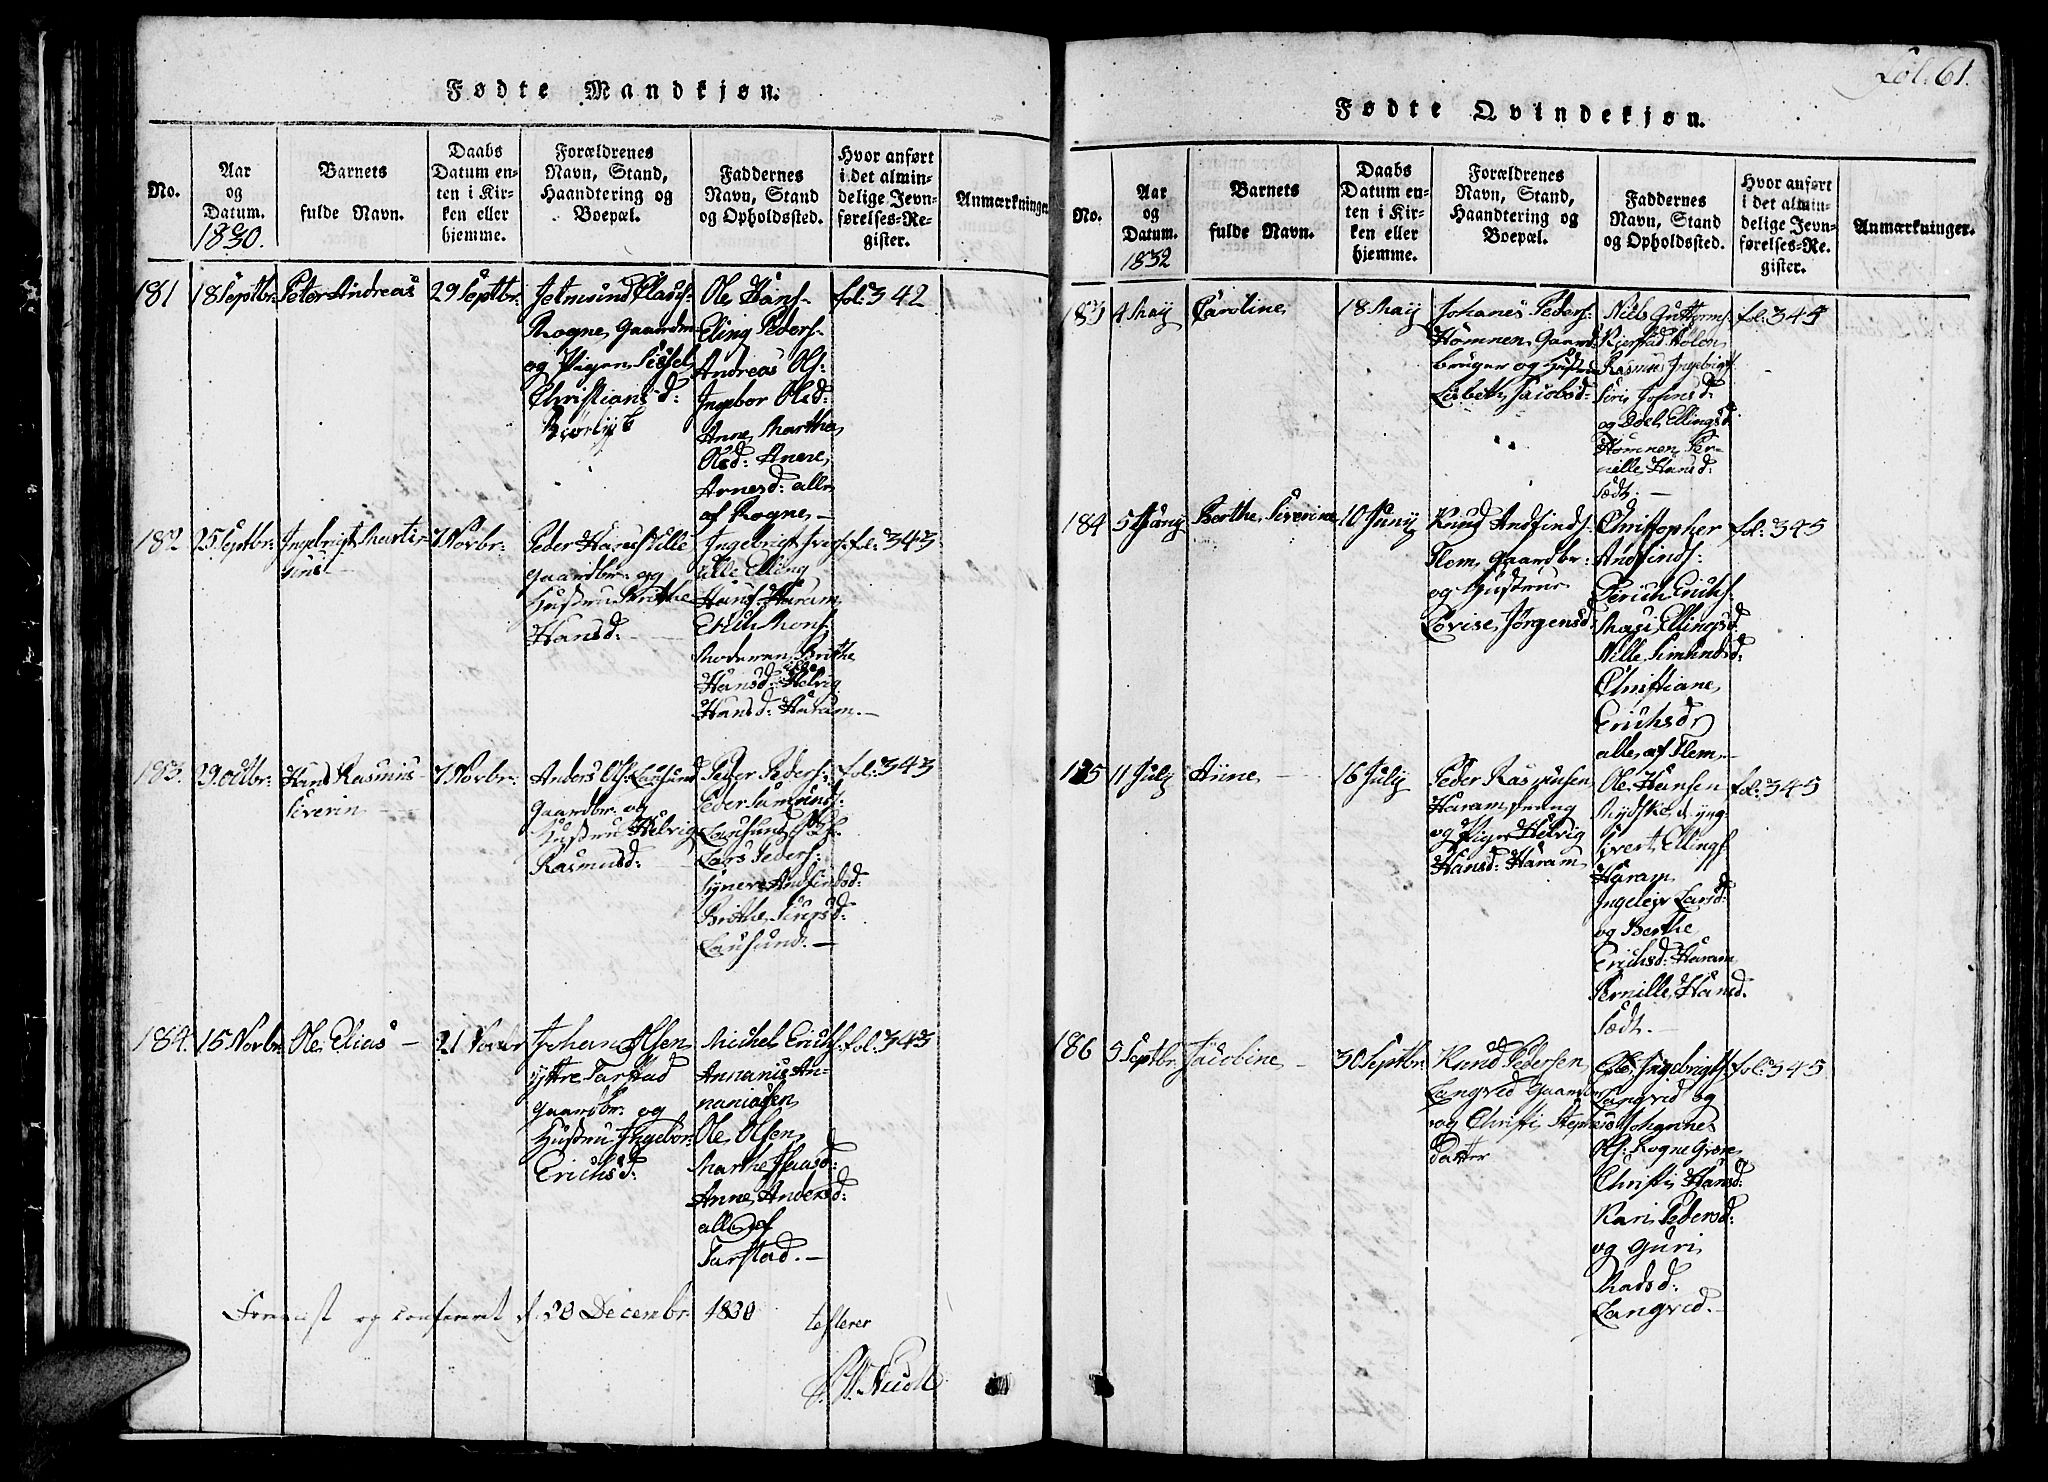 Fødte Mandkjøn.
No.
Aar
og
Datum.
1830.
Barnets
fulde Navn.
Daabs
Datum en-
ten i Kir-
ken eller
hjemme.
Forældrenes
Navn, Stand,
Haandtering og
Boepæl.
Faddernes
Navn, Stand
og Opholdssted.
Hvor anført
i det almin-
delige Jevn-
førelses-Re-
gister.
Anmærkninger
181
18 Septbr:
Peter Andreas
29 Septbr:
Rogne, Gaardm
og Pigen Sissel
Christiansd:
Ole Hans-
Elling Peders-
Andreas Ols:
Ingebor Olsd:
Anne Marthe
Olsd: Anne
Arnesd: alle
af Rogne, —
fol: 342
182
25 Septbr:
Ingebrigt Marti-
nus —
7 Novbr:
Peder Hans: Ulle
Gaardbr: og
Hustru Brithe
Hansd: —
Ingebrigt Ivers:
Ulle Elling
Hans: Haram
Erich Mons:
Brithe
Hansd: Ulle Helvig
Hansd: Haram. —
fol: 343
183.
29 octbr:
Hans Rasmus
Siverin —
7 Novbr:
Anders Ols: Lausund
Gaardbr: og
Hustru Helvig
Rasmusd: —
Peder Peders:
Peder Samunds:
Lausund
Lars Peders:
Syneve Andfindsd:
Brithe
Lausund. —
fol: 343
184.
15 Novbr:
Ole Elias —
21 Novbr
Johan Olsen
yttre Tarstad
Gaardbr: og
Hustru Ingebor:
Erichsd:
Michel Erichs:
Annanias An-
naniasen
Ole Olsen
Marthe
Anne Andersd:
alle af
Tarstad. —
fol: 343
og confereret d. 20 Decembr: 1830
testerer
Fol. 61.
Fødte Qvindekjøn.
No.
Aar
og
Datum.
1832
Barnets
fulde Navn.
Daabs
Datum en-
ten i Kir-
ken eller
hjemme.
Forældrenes
Navn, Stand,
Haandtering og
Boepæl.
Faddernes
Navn, Stand
og Opholdssted.
Hvor anført
i det almin-
delige Jevn-
førelses-Re-
gister.
Anmærkninger.
183
4 May
Caroline
18 May
Johanes Peders:
Homnen, Gaard-
bruger og Hustru
Lisbeth Jacobsd:
Niels Guttorms:
Kierstad Holen
Rasmus Ingebrigt:
Siri Johnsd:
og Boel Ellingsd:
Homnen Per-
nille Hansd:
Sædt. —
fol: 345
184
5 Juny
Berthe Siverine
10 Juny
Knud Andfinds:
Flem, Gaardbr:
og Hustrue
Lovise Jørgensd:
Christopher
Andfinds:
Erichs:
Mari Ellingsd:
Nille Simundsd:
Christiane
Erichsdr
alle af Flem, —
fol: 345
185
11 July
Anne —
16 July
Peder Rasmusen
Haram, ung
og Pige Helvig
Hansd: Haram
Ole Hansen
Sivert Ellings:
Haram
Ingeleiv Larsd:
og Berthe
Erichsd: Haram
Pernille Hansd:
Sædt. —
fol: 345
186
5 Septbr:
Jacobine —
30 Septbr:
Knud Pedersen
Langved Gaardbr
og Christi Stephens
datter
Ole Ingebrigts:
Langved og
Johannes
Ols: Rogne
Christi Hansd:
Kari Pedersd:
og Guri
Madsd:
Langved. —
fol: 345